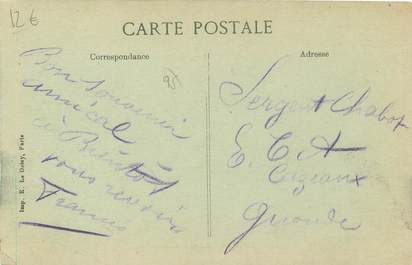 12 €
CARTE POSTALE
Correspondance
Adresse
95
Bon Souvenir
amical
à Bientôt
vous revoir
Sergent Chabot
E. C. A
Cazaux
Gironde
Imp. E. Le Deley, Paris